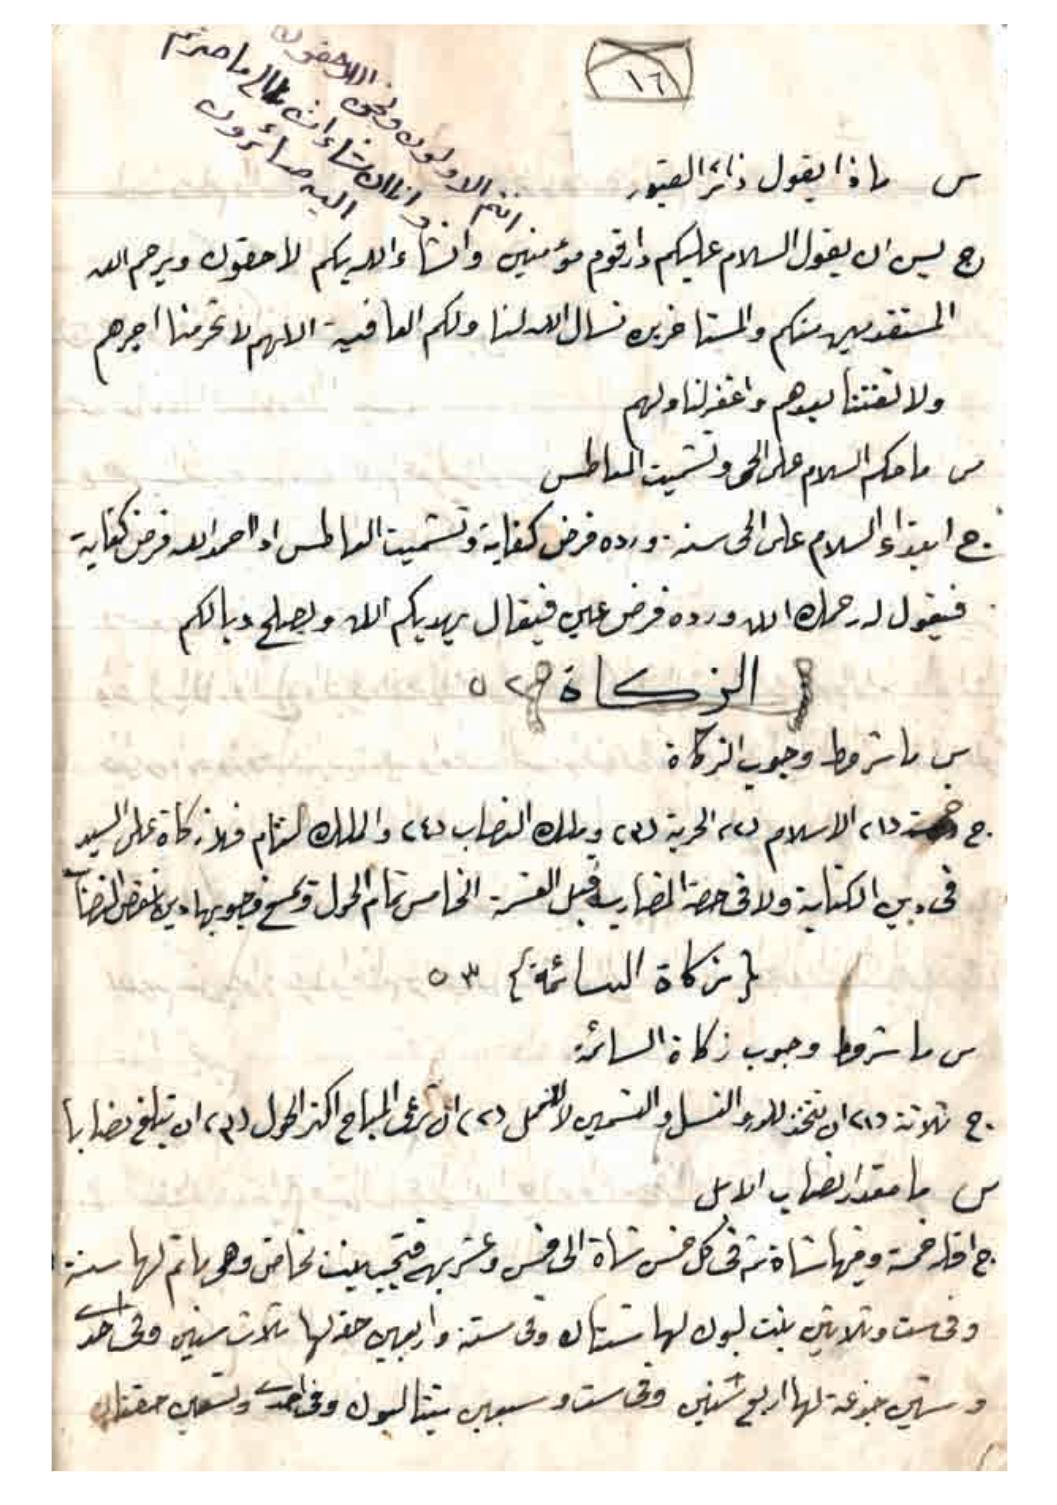 ١٦
انتم الاولون ونحن اللاحقون
وانا ان شاء الله الى ما صرتم
اليه صائرون
س ماذا يقول زائر القبور
ج يسن ان يقول السلام عليكم دار قوم مؤمنين وانشاء الله بكم لاحقون ويرحم الله
المستقدمين منكم والمستاخرين نسال الله لنا ولكم العافية اللهم لا تحرمنا اجرهم
ولا تفتنا بعدهم واغفر لنا ولهم
س ما حكم السلام على الحى وتشميت العاطس
ج ابتداء السلام على الحى سنة ورده فرض كفاية وتشميت العاطس اذا حمد الله فرض كفاية
فيقول له يرحمك الله ورده فرض عين فيقال يهديكم الله ويصلح بالكم
{ الزكاة } ٥٢
س ما شروط وجوب الزكاة
ج خمسة (١) الاسلام (٢) الحرية (٣) وملك النصاب (٤) والملك التام فلا زكاة على السيد
فى دين الكتابة ولا فى حصة المضارب قبل القسمة الخامس تمام الحول ويمنع وجوبها دين ينقص النصاب
{ زكاة السائمة } ٥٣
س ما شروط وجوب زكاة السائمة
ج ثلاثة (١) ان تتخذ للدر والنسل والتسمين لا للعمل (٢) ان ترعى المباح اكثر الحول (٣) ان تبلغ نصابا
س ما مقدار نصاب الابل
ج اقله خمسة وفيها شاة ثم فى كل خمس شاة الى خمس وعشرين فتجب بنت مخاض وهى ما تم لها سنة
وفى ست وثلاثين بنت لبون لها سنتان وفى ستة واربعين حقة لها ثلاث سنين وفى احدى
وستين جذعة لها اربع سنين وفى ست وسبعين بنتا لبون وفى احدى وتسعين حقتان